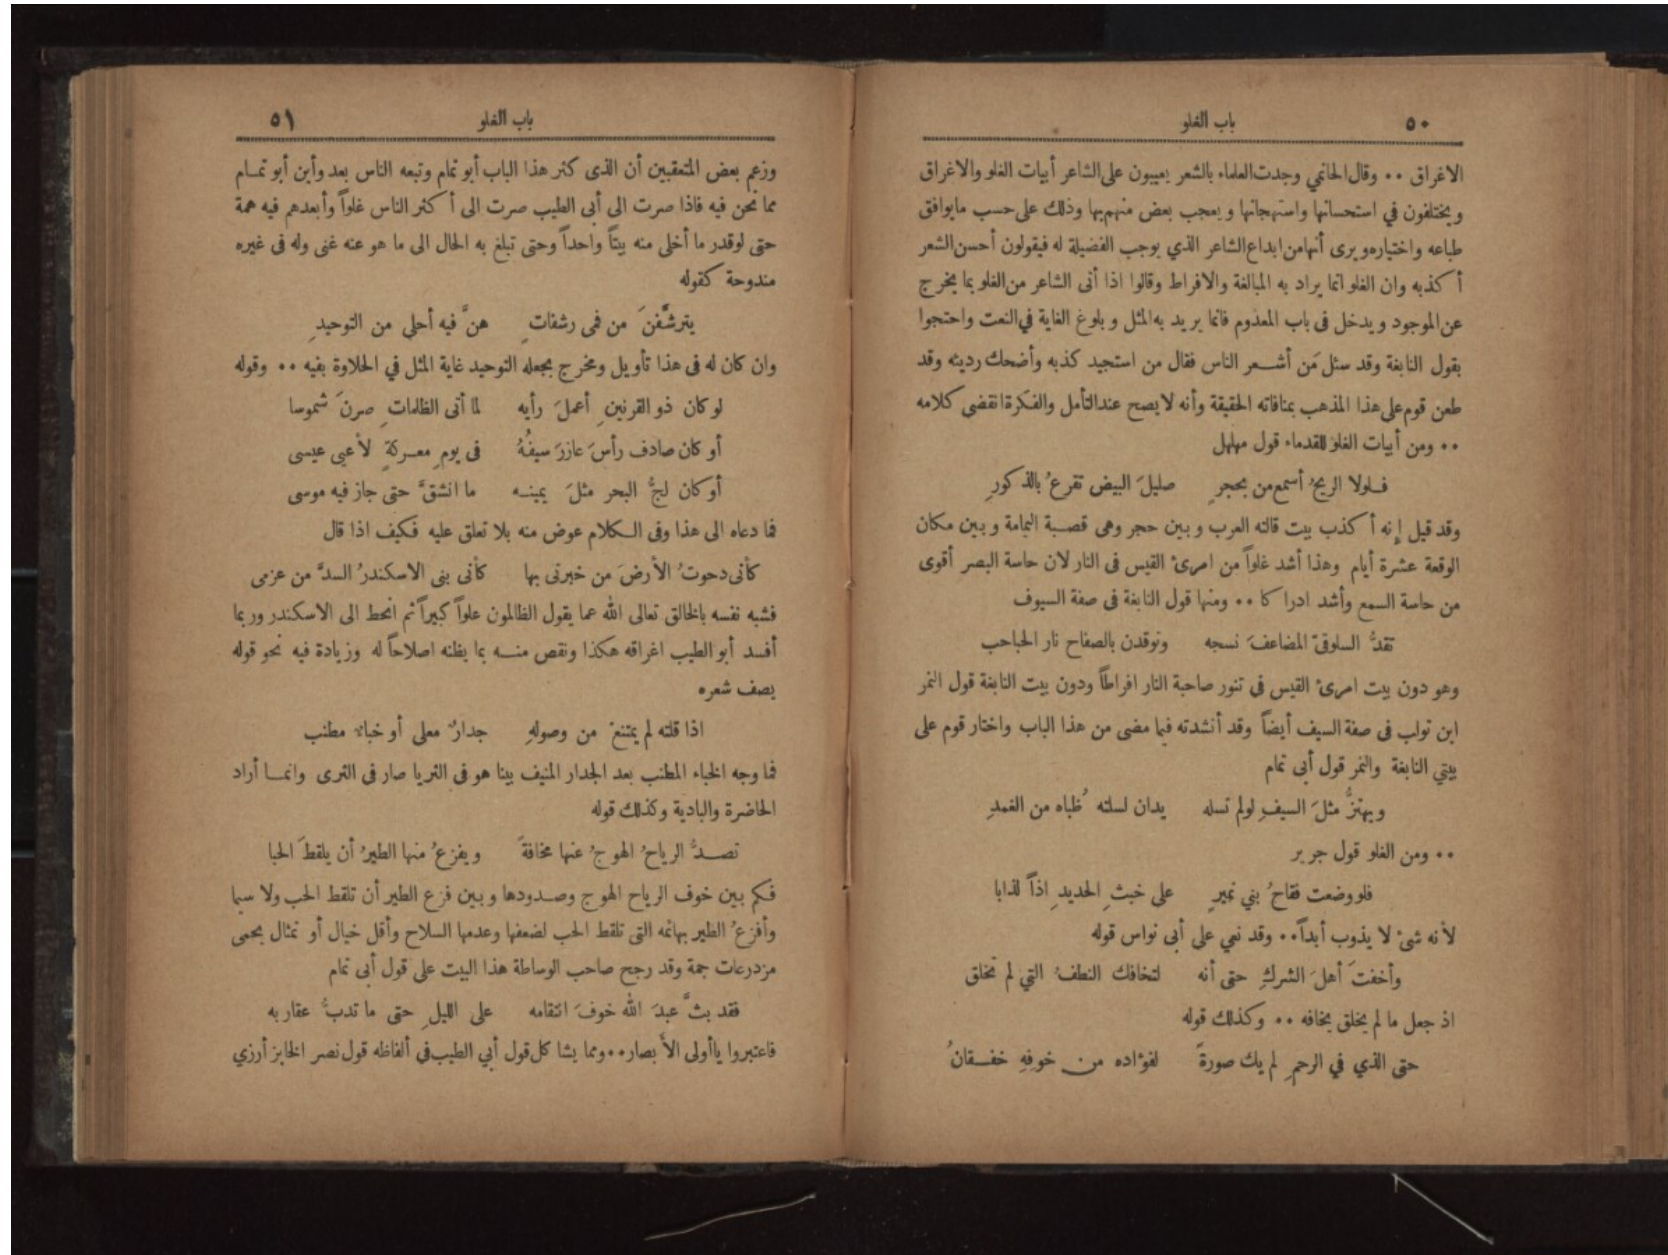 ٥٠
باب الغلو
الاغراق ٠٠ وقال الحاتمي وجدت العلماء بالشعر يعيبون على الشاعر أبيات الغلو والاغراق
ويختلفون في استحسانها واستهجانها ويعجب بعض منهم بها وذلك على حسب مايوافق
طباعه واختياره ويرى أنها من ابداع الشاعر الذي يوجب الفضيلة له فيقولون أحسن الشعر
أكذبه وان الغلو انما يراد به المبالغة والافراط وقالوا اذا أتى الشاعر من الغلو بما يخرج
عن الموجود ويدخل فى باب المعدوم فانما يريد به المثل وبلوغ الغاية في النعت واحتجوا
بقول النابغة وقد سئل مَن أشـعر الناس فقال من استجيد كذبه وأضحك رديئه وقد
طعن قوم على هذا المذهب بمنافاته الحقيقة وأنه لا يصح عند التأمل والفكرة انقضى كلامه
٠٠ ومن أبيات الغلو للقدماء قول مهلهل
فـلولا الريحُ أسمع من بحجرٍ صليلَ البيض تقرعُ بالذكورِ
وقد قيل إنه أكذب بيت قالته العرب وبين حجر وهى قصـبة اليمامة وبين مكان
الوقعة عشرة أيام وهذا أشد غلواً من امرئ القيس فى النار لان حاسة البصر أقوى
من حاسة السمع وأشد ادراكا ٠٠ ومنها قول النابغة فى صفة السيوف
تقدُّ السلوقىّ المضاعفَ نسجه وتوقدن بالصفاح نار الحباحب
وهو دون بيت امرئ القيس فى تنور صاحبة النار افراطاً ودون بيت النابغة قول النمر
ابن تولب فى صفة السيف أيضاً وقد أنشدته فيما مضى من هذا الباب واختار قوم على
بيتي النابغة والنمر قول أبى تمام
ويهتزُّ مثلَ السيفِ لولم تسله يدان لسلته ظُباه من الغمدِ
٠٠ ومن الغلو قول جرير
فلو وضعت فقاحُ بني نميرٍ على خبثِ الحديدِ اذاً لذابا
لأنه شئ لا يذوب أبداً٠٠ وقد نعي على أبى نواس قوله
وأخفتَ أهلَ الشركِ حتى أنه لتخافك النطفُ التي لم تخلق
اذ جعل ما لم يخلق يخافه ٠٠ وكذلك قوله
حتى الذي في الرحمِ لم يك صورةً لفؤاده من خوفهِ خفـقانُ
٥١
باب الغلو
وزعم بعض المتعقبين أن الذى كثر هذا الباب أبو تمام وتبعه الناس بعد وأين أبو تمـام
مما نحن فيه فاذا صرت الى أبى الطيب صرت الى أكثر الناس غلواً وأبعدهم فيه همة
حتى لوقدر ما أخلى منه بيتاً واحداً وحتى تبلغ به الحال الى ما هو عنه غنى وله فى غيره
مندوحة كقوله
يترشَّفنَ من فمى رشفاتٍ هنَّ فيه أحلى من التوحيدِ
وان كان له فى هذا تأويل ومخرج بجعله التوحيد غاية المثل في الحلاوة بفيه ٠٠ وقوله
لو كان ذو القرنينِ أعملَ رأيه لما أتى الظلماتِ صرنَ شموسا
أو كان صادف رأسَ عازرَ سيفُهُ فى يومِ معـركةٍ لأعيى عيسى
أوكان لجُّ البحر مثلَ يمينـه ما انشقَّ حتى جاز فيه موسى
فما دعاه الى هذا وفى الـكلام عوض منه بلا تعلق عليه فكيف اذا قال
كأنى دحوتُ الأرضَ من خبرتى بها كأنى بنى الاسكندرُ السدَّ من عزمى
فشبه نفسه بالخالق تعالى الله عما يقول الظالمون علواً كبيراً ثم انحط الى الاسكندر وربما
أفسد أبو الطيب اغراقه هكذا ونقص منـه بما يظنه اصلاحاً له وزيادة فيه نحو قوله
يصف شعره
اذا قلته لم يمتنعْ من وصولهِ جدارٌ معلى أو خباءٌ مطنب
فما وجه الخباء المطنب بعد الجدار المنيف بينا هو فى الثريا صار فى الثرى وانمـا أراد
الحاضرة والبادية وكذلك قوله
تصـدُّ الرياحُ الهوجُ عنها مخافةً ويفزعُ منها الطيرُ أن يلقطَ الحبا
فكم بين خوف الرياح الهوج وصـدودها وبين فزع الطير أن تلقط الحب ولا سيما
وأفزعُ الطير بهائمه التى تلقط الحب لضعفها وعدمها السلاح وأقل خيال أو تمثال يحمى
مزدرعات جمة وقد رجح صاحب الوساطة هذا البيت على قول أبى تمام
فقد بثَّ عبدَ الله خوفَ انتقامه على الليلِ حتى ما تدبُّ عقاربه
فاعتبروا ياأولى الأبصار٠٠ومما يشاكل قول أبي الطيب في ألفاظه قول نصر الخابز أرزي